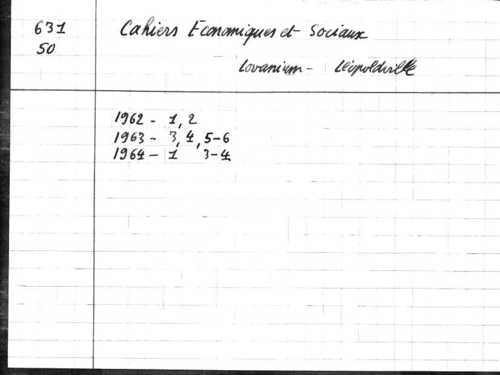 631 Cahiers Economiques et Sociaux
50
Lovanium - Léopoldville
1962 - 1, 2
1963 - 3, 4, 5-6
1964 - 1 3-4